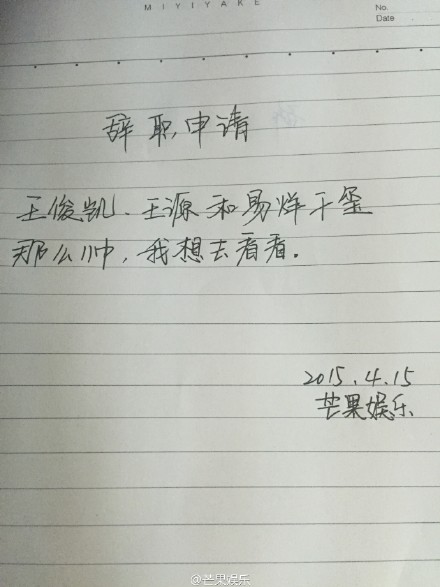 MIYIYAKE
No.
Date
辞职申请
王俊凯、王源和易烊千玺
那么帅，我想去看看。
2015.4.15
芒果娱乐
@芒果娱乐